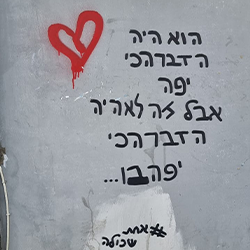 הוא היה
הדבר הכי
יפה
אבל זה לא היה
הדבר הכי
יפה בו...
#אחת
שכולה